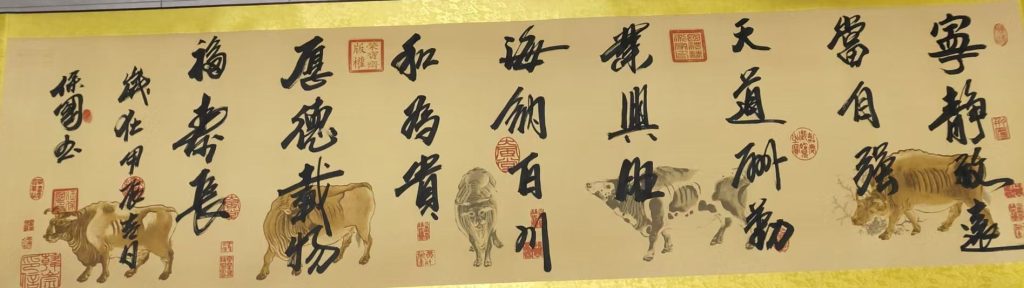 寧靜致遠
當自强
天道酬勤
業興旺
海納百川
和為貴
厚德載物
福壽長
歲在甲辰春日
保國书
版權